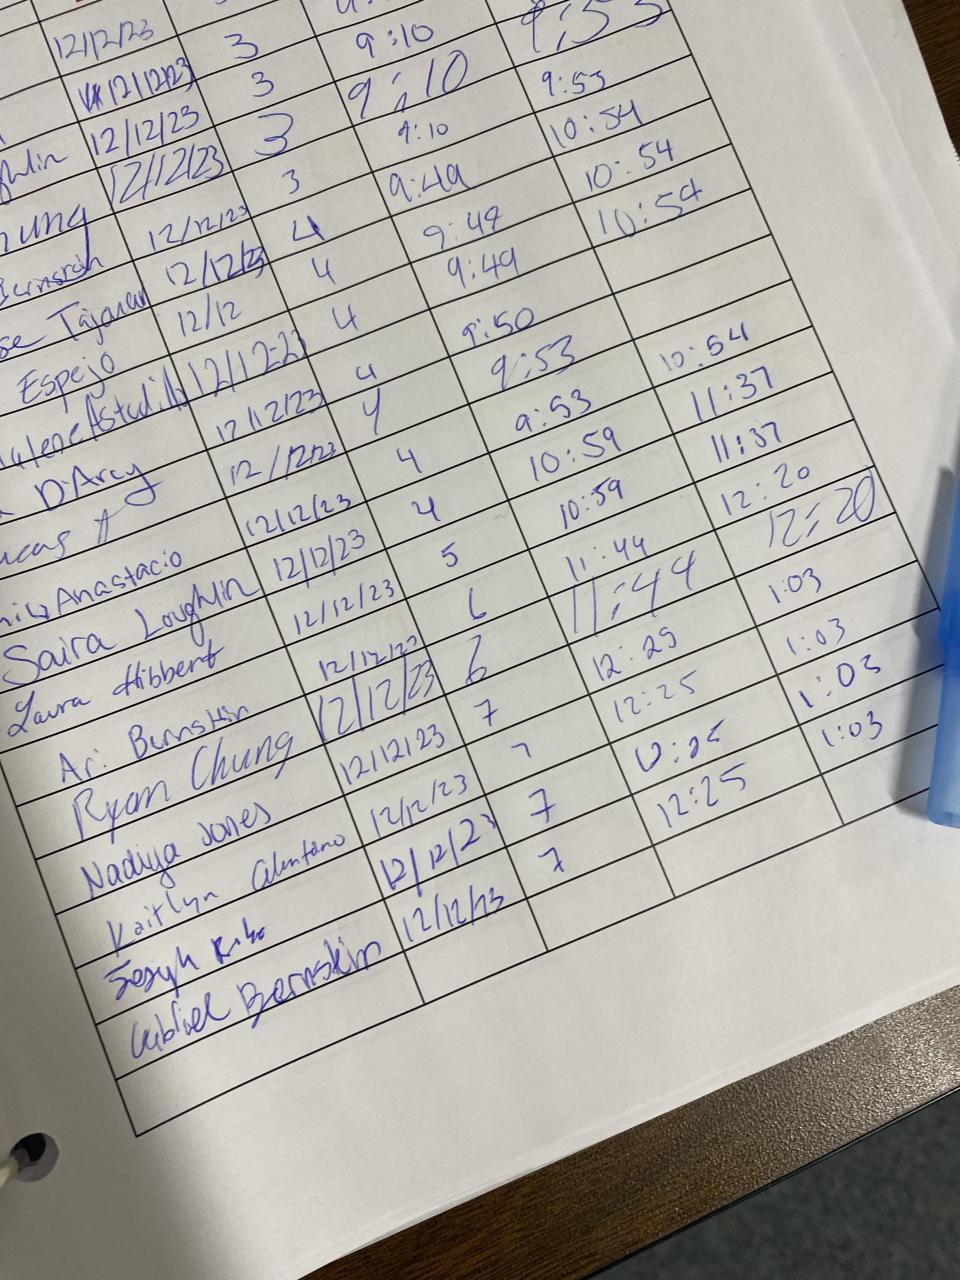 12/12/23
12/12/23 3 9:10 9:53
hlin 12/12/23 3 9:10 9:53
hung 12/12/23 3 9:10 9:53
Bernstein 12/12/23 3
se Tajanan 12/12/23 4 9:49 10:54
Espejo 12/12 4 9:49 10:54
alene Astudillo 12/12/23 4 9:49 10:54
D'Arcy 12/12/23 4 9:50
ucas A 12/12/23 4 9:53
Anastacio 12/12/23 4 9:53 10:54
Saira Loughlin 12/12/23 4 10:59 11:37
Laura Hibbert 12/12/23 5 10:59 11:37
Ari Bernstein 12/12/23 6 11:44 12:20
Ryan Chung 12/12/23 6 11:44 12:20
Nadiya Jones 12/12/23 7 12:25 1:03
Kaitlyn 12/12/23 7 12:25 1:03
Joseph 12/12/23 7 12:25 1:03
Gabriel Bernstein 12/12/23 7 12:25 1:03